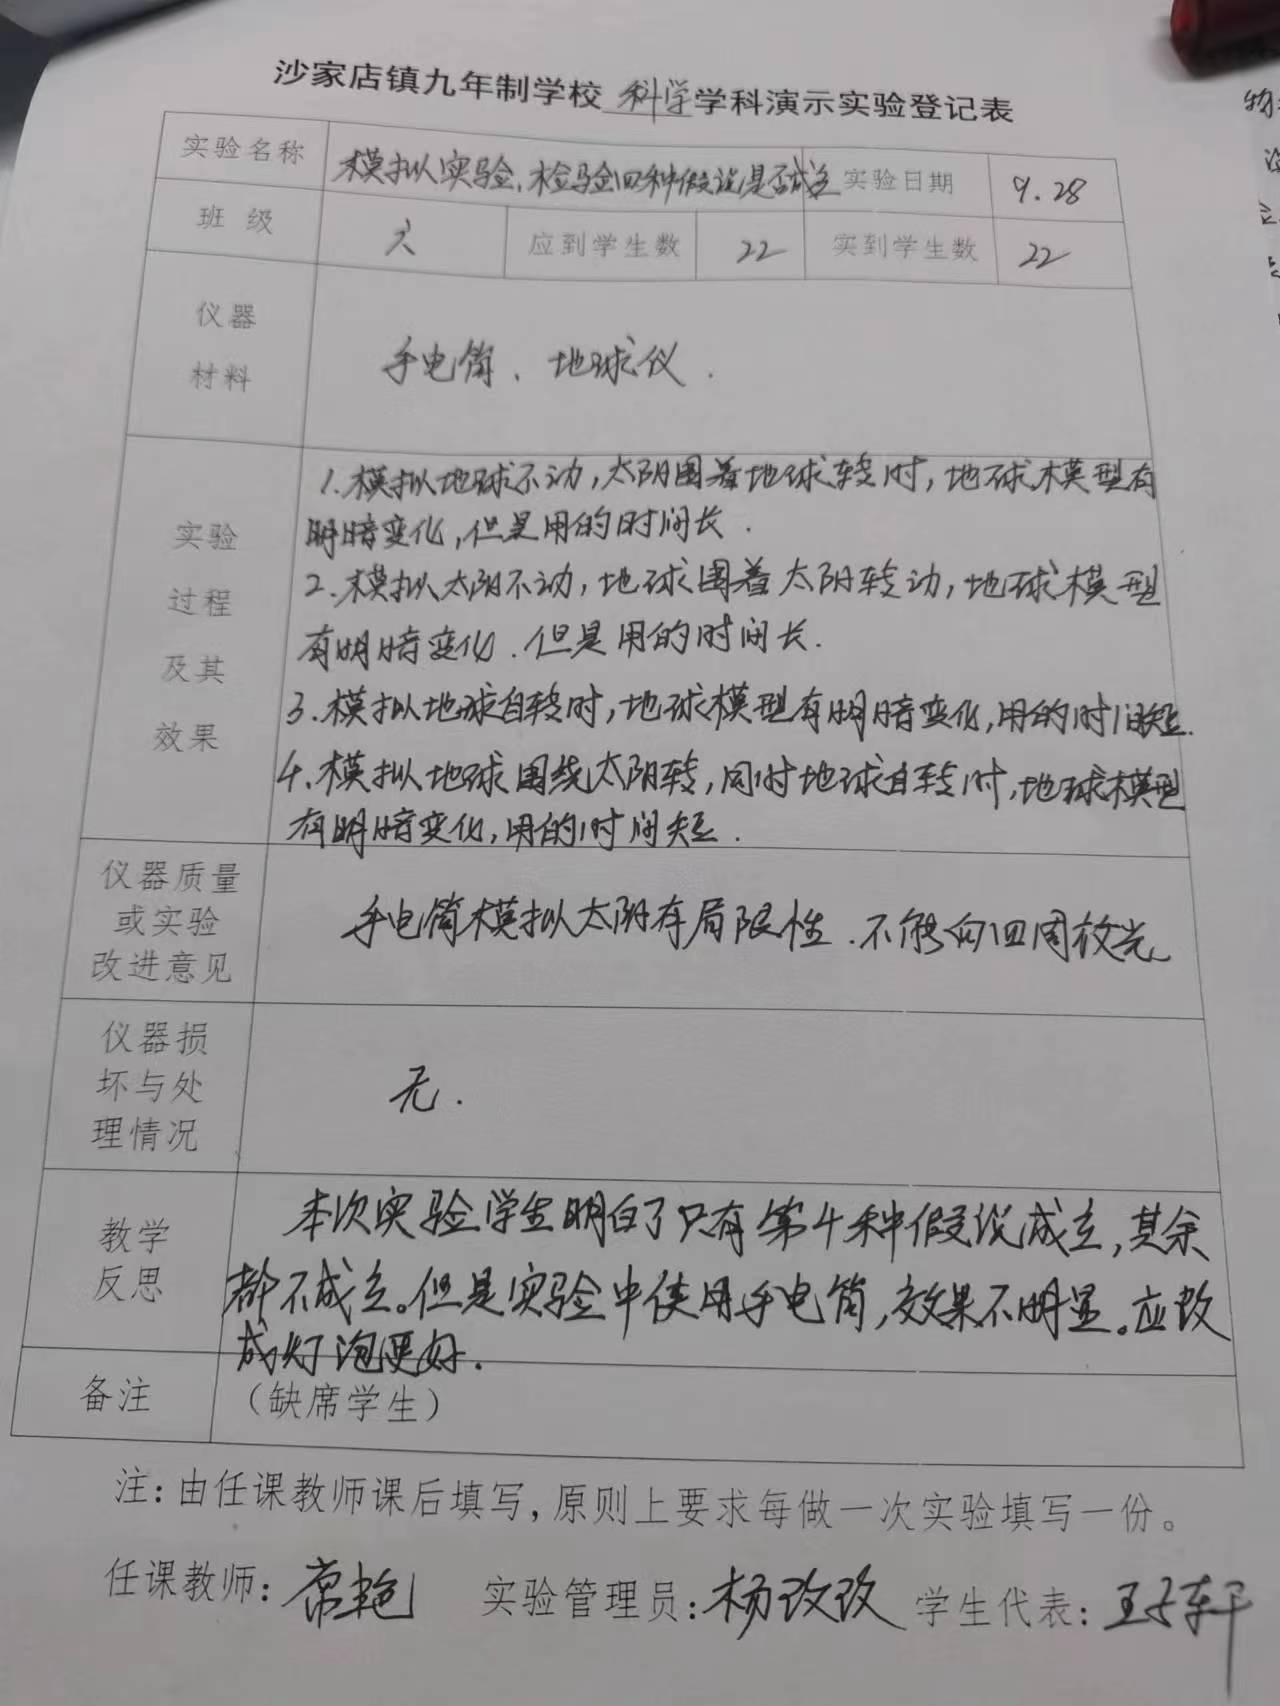 沙家店镇九年制学校 科学 学科演示实验登记表
实验名称 模拟实验,检验四种假说是否成立 实验日期 9.28
班级 六 应到学生数 22 实到学生数 22
仪器
材料
手电筒、地球仪.
实验
过程
及其
效果
1.模拟地球不动,太阳围着地球转时,地球模型有
明暗变化,但是用的时间长.
2.模拟太阳不动,地球围着太阳转动,地球模型
有明暗变化.但是用的时间长.
3.模拟地球自转时,地球模型有明暗变化,用的时间短.
4.模拟地球围绕太阳转,同时地球自转时,地球模型
有明暗变化,用的时间短.
仪器质量
或实验
改进意见
手电筒模拟太阳有局限性.不能向四周放光
仪器损
坏与处
理情况
无.
教学
反思
本次实验学生明白了只有第4种假说成立,其余
都不成立。但是实验中使用手电筒,效果不明显。应改
成灯泡更好.
备注 (缺席学生)
注:由任课教师课后填写,原则上要求每做一次实验填写一份。
任课教师: 艳 实验管理员:杨改改 学生代表:王子轩